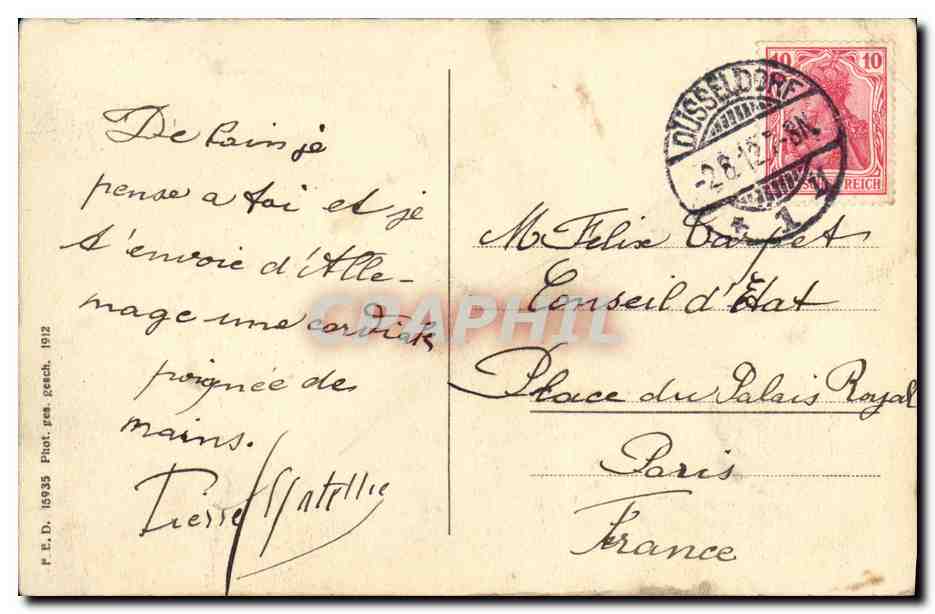 De loin je
pense a toi et je
t'envoie d'Alle-
mage une cordiale
poignée de
mains.
Pierre
M Felix Carpet
Conseil d'Etat
Place du Palais Royal
Paris
France
10 10
REICH
DÜSSELDORF
-2.8.12.7-8N.
* 1 u
CPAPHIL
P. E. D. 15935 Phot. ges. gesch. 1912